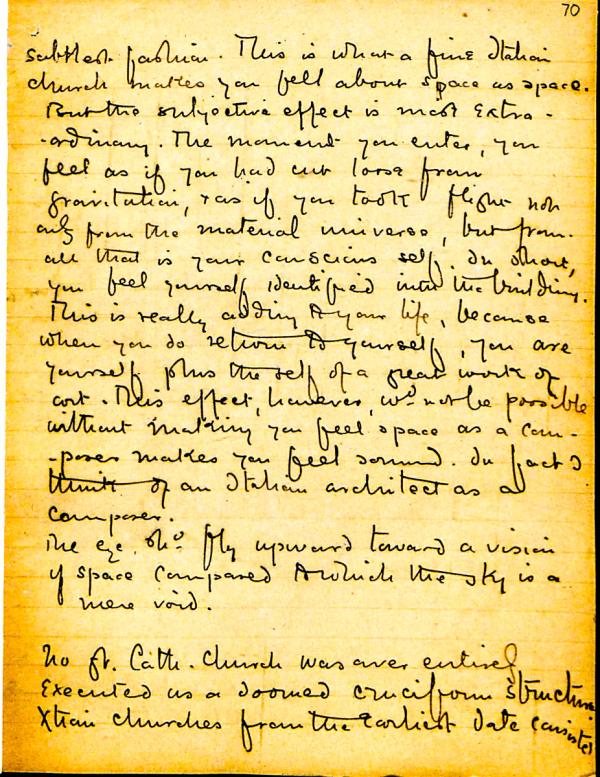 70
subtlest fashion. This is what a fine Italian
church makes you fell about space as space.
But the subjective effect is most extra-
-ordinary. The moment you enter, you
feel as if you had cut loose from
gravitation, & as if you took flight not
only from the material universe, but from
all that is your conscious self. In short,
you feel yourself identified with the building.
This is really adding to your life, because
when you do return to yourself, you are
yourself plus the self of a great work of
art. This effect, however, wd not be possible
without making you feel space as a com-
-poser makes you feel sound. In fact I
think of an Italian architect as a
composer.
The eye shd fly upward toward a vision
of space compared to which the sky is a
mere void.
No gt. Cath. Church was ever entirely
executed as a domed cruciform structure
Xtian churches from the earliest date consisted